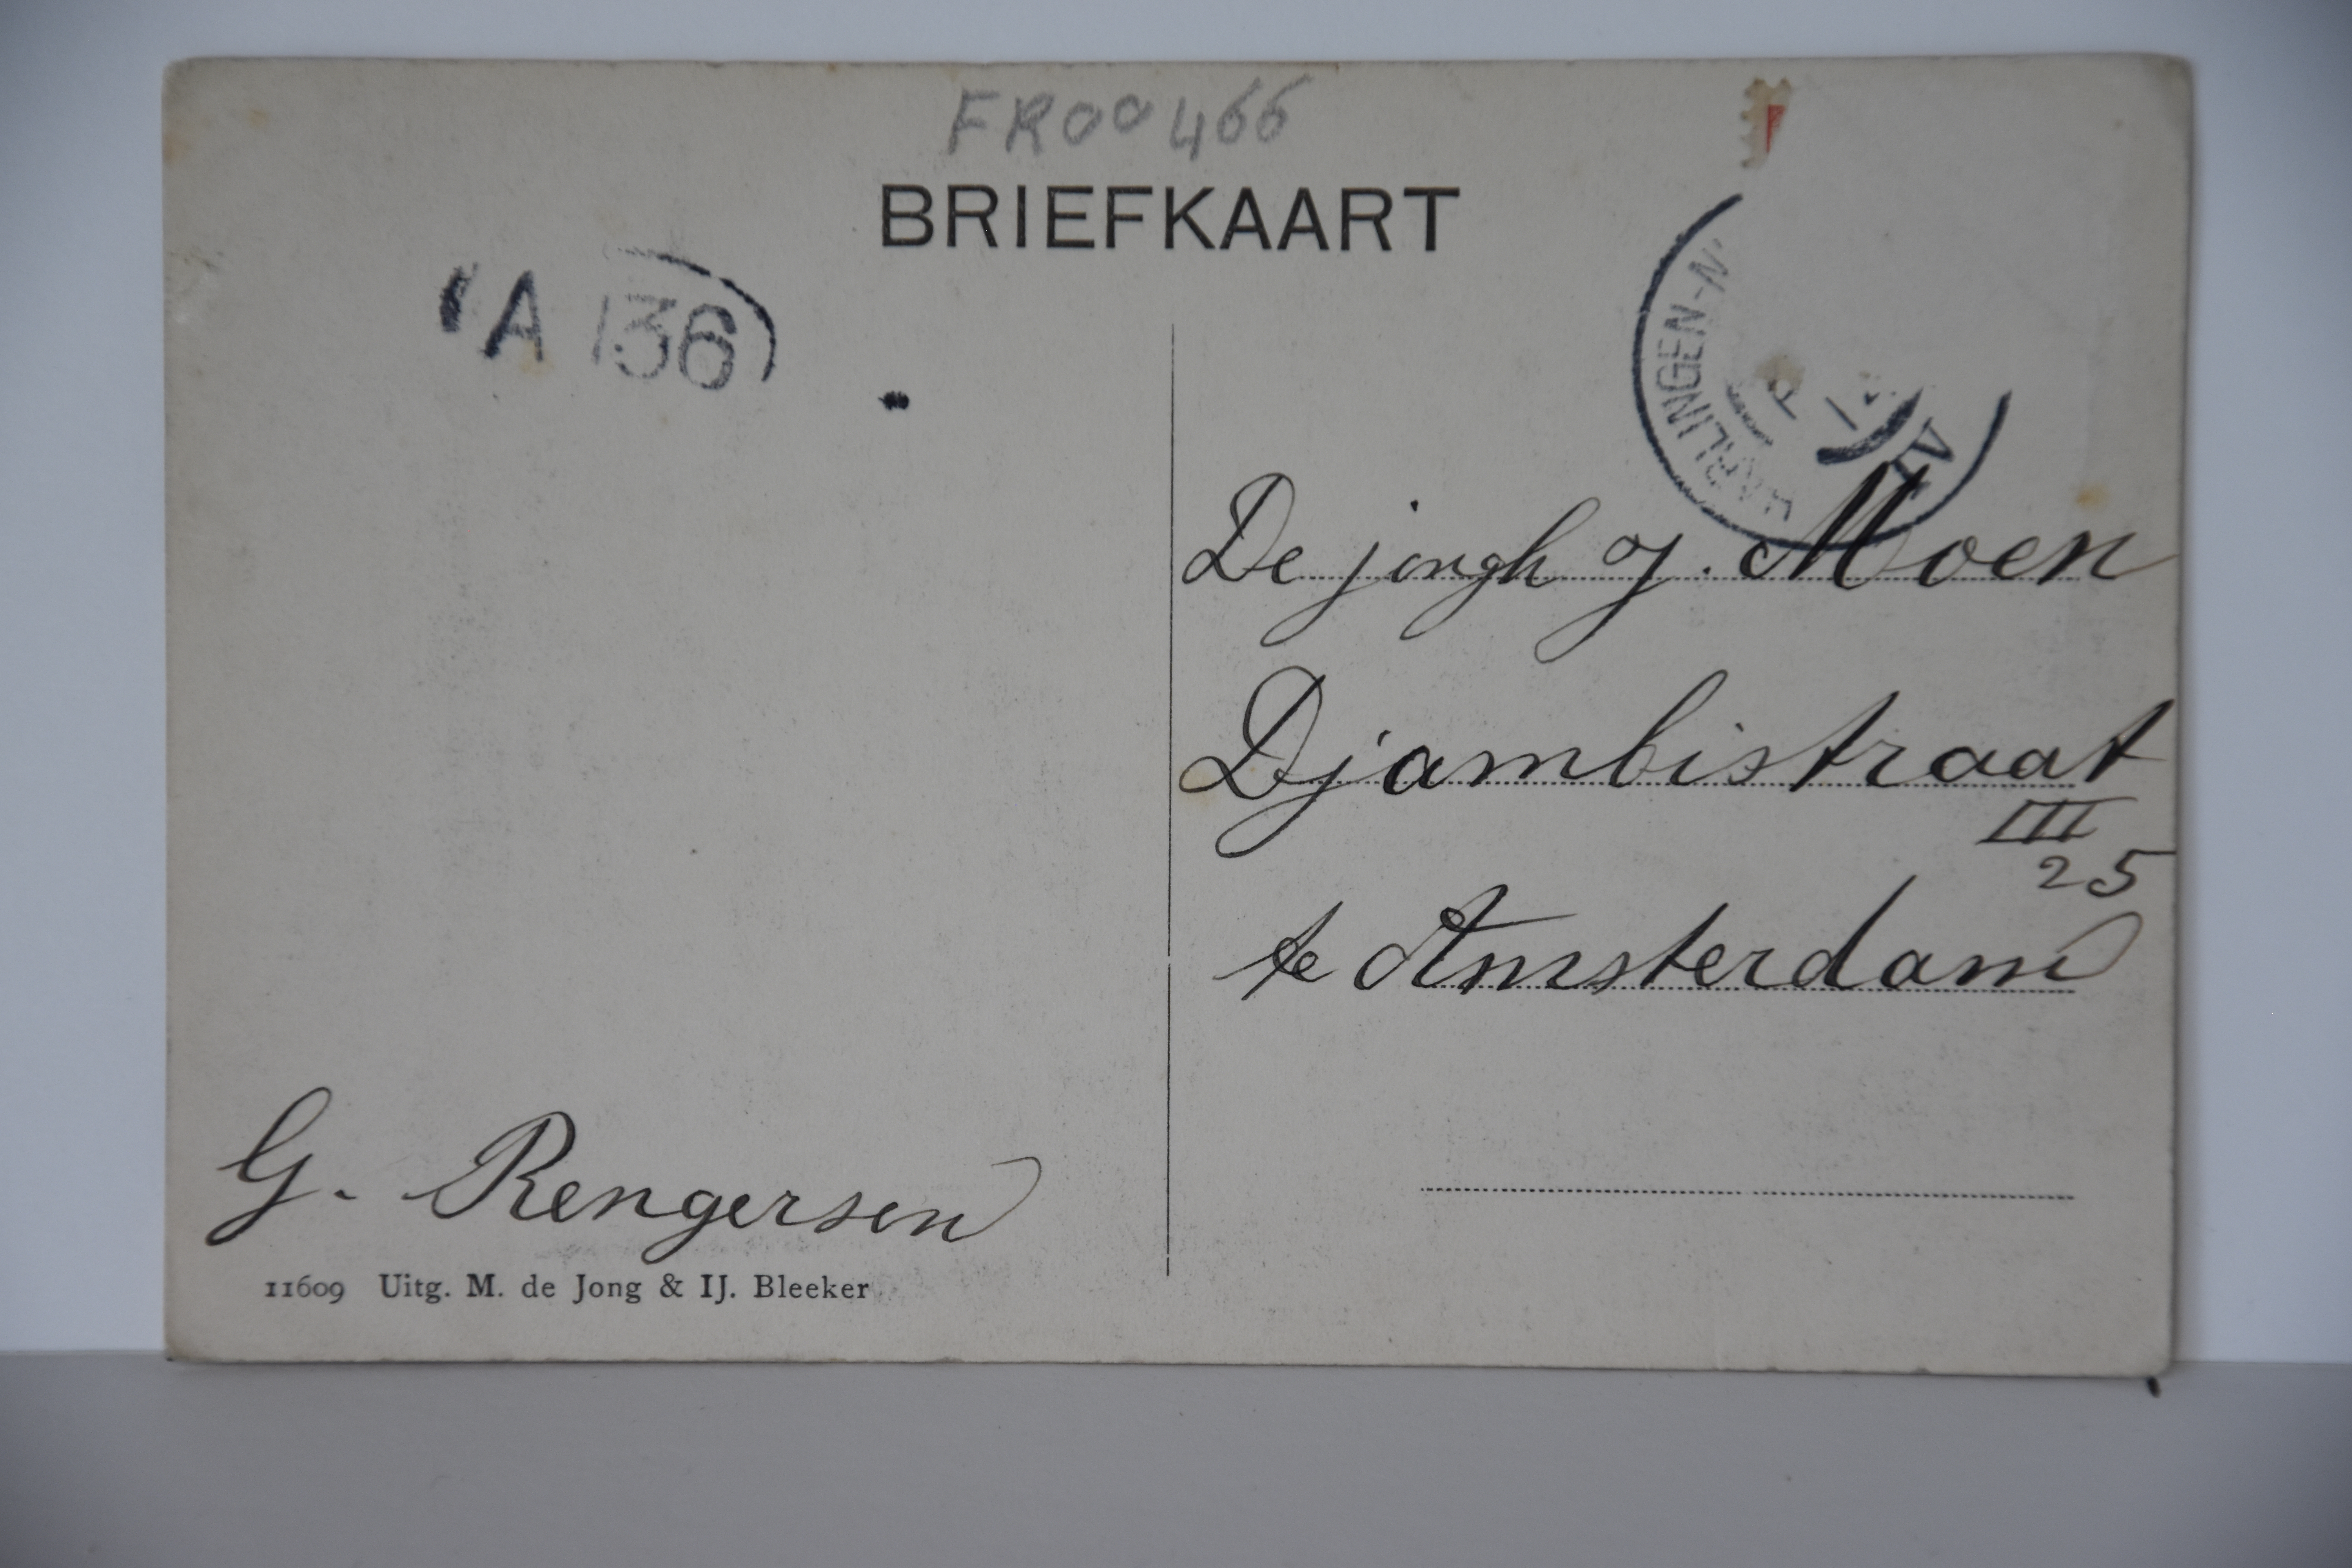 FR00466
BRIEFKAART
A 136
HARLINGEN-N
IV
De jongh J. Moen
Djambistraat
III
25
te Amsterdam
G. Rengersen
11609 Uitg. M. de Jong & IJ. Bleeker